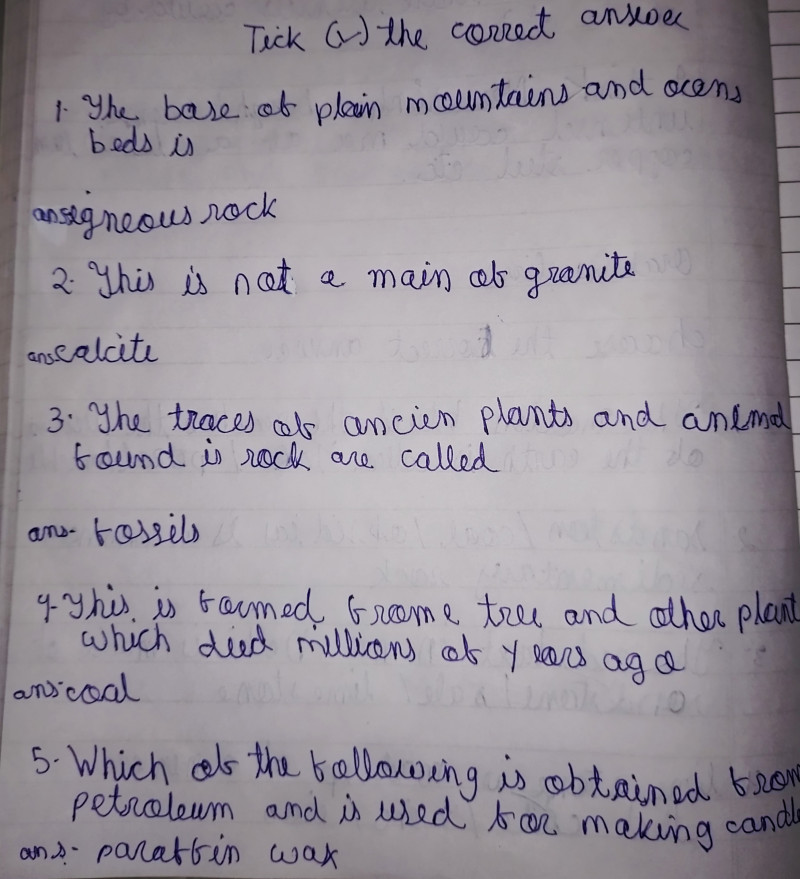 Tick (✓) the correct answer
1. The base of plain mountains and ocens
beds is
ans igneous rock
2. This is not a main of granite
ans calcite
3. The traces of ancien plants and animal
found is rock are called
ans- fossils
4. This is formed frome tree and other plant
which died millions of years ago
ans- coal
5. Which of the following is obtained from
petroleum and is used for making candle
ans- paraffin wax